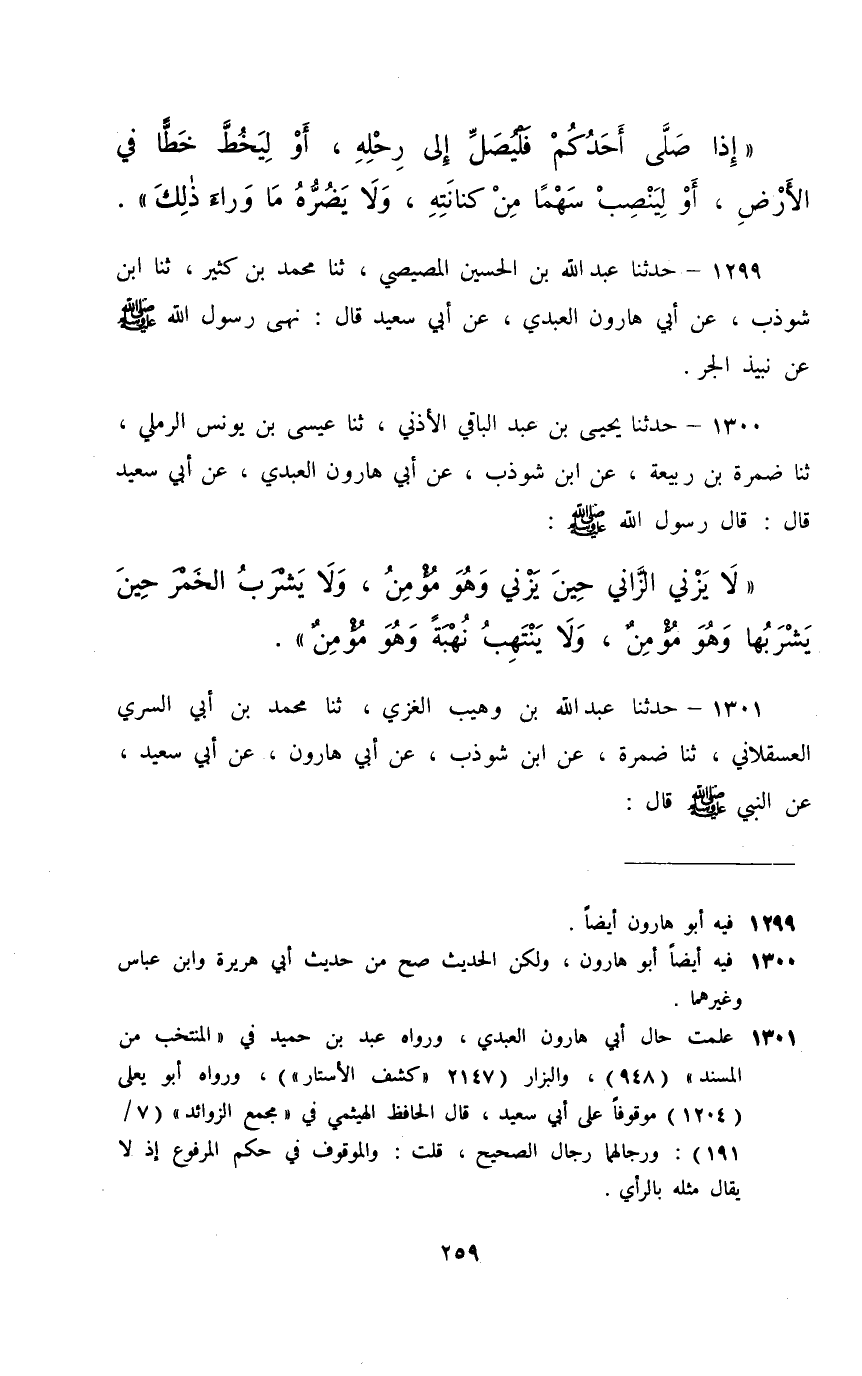 « إِذا صَلَّى أَحَدُكُمْ فَلْيُصَلِّ إِلى رِحْلِهِ ، أَوْ لِيَخُطَّ خَطًّا في
الأَرْضِ ، أَوْ لِيَنْصِبْ سَهْمًا مِنْ كنانَتِهِ ، وَلَا يَضُرُّهُ مَا وَراءَ ذٰلِكَ» .
١٢٩٩ – حدثنا عبد الله بن الحسين المصيصي ، ثنا محمد بن كثير ، ثنا ابن
شوذب ، عن أبي هارون العبدي ، عن أبي سعيد قال : نهى رسول الله ﷺ
عن نبيذ الجر .
١٣٠٠ – حدثنا يحيى بن عبد الباقي الأذني ، ثنا عيسى بن يونس الرملي ،
ثنا ضمرة بن ربيعة ، عن ابن شوذب ، عن أبي هارون العبدي ، عن أبي سعيد
قال : قال رسول الله ﷺ :
« لَا يَزْني الزَّاني حِينَ يَزْني وَهُوَ مُؤْمِنُ ، وَلَا يَشْرَبُ الخَمْرَ حِينَ
يَشْرَبُها وَهُوَ مُؤْمِنٌ ، وَلَا يَنْتَهِبُ نُهْبَةً وَهُوَ مُؤْمِنٌ» .
١٣٠١ – حدثنا عبد الله بن وهيب الغزي ، ثنا محمد بن أبي السري
العسقلاني ، ثنا ضمرة ، عن ابن شوذب ، عن أبي هارون ، عن أبي سعيد ،
عن النبي ﷺ قال :
١٢٩٩ فيه أبو هارون أيضاً .
١٣٠٠ فيه أيضاً أبو هارون ، ولكن الحديث صح من حديث أبي هريرة وابن عباس
وغيرهما .
١٣٠١ علمت حال أبي هارون العبدي ، ورواه عبد بن حميد في «المنتخب من
المسند» (٩٤٨) ، والبزار (٢١٤٧ «كشف الأستار») ، ورواه أبو يعلى
(١٢٠٤) موقوفاً على أبي سعيد ، قال الحافظ الهيثمي في «مجمع الزوائد» (٧/
١٩١) : ورجالهما رجال الصحيح ، قلت : والموقوف في حكم المرفوع إذ لا
يقال مثله بالرأي .
٢٥٩